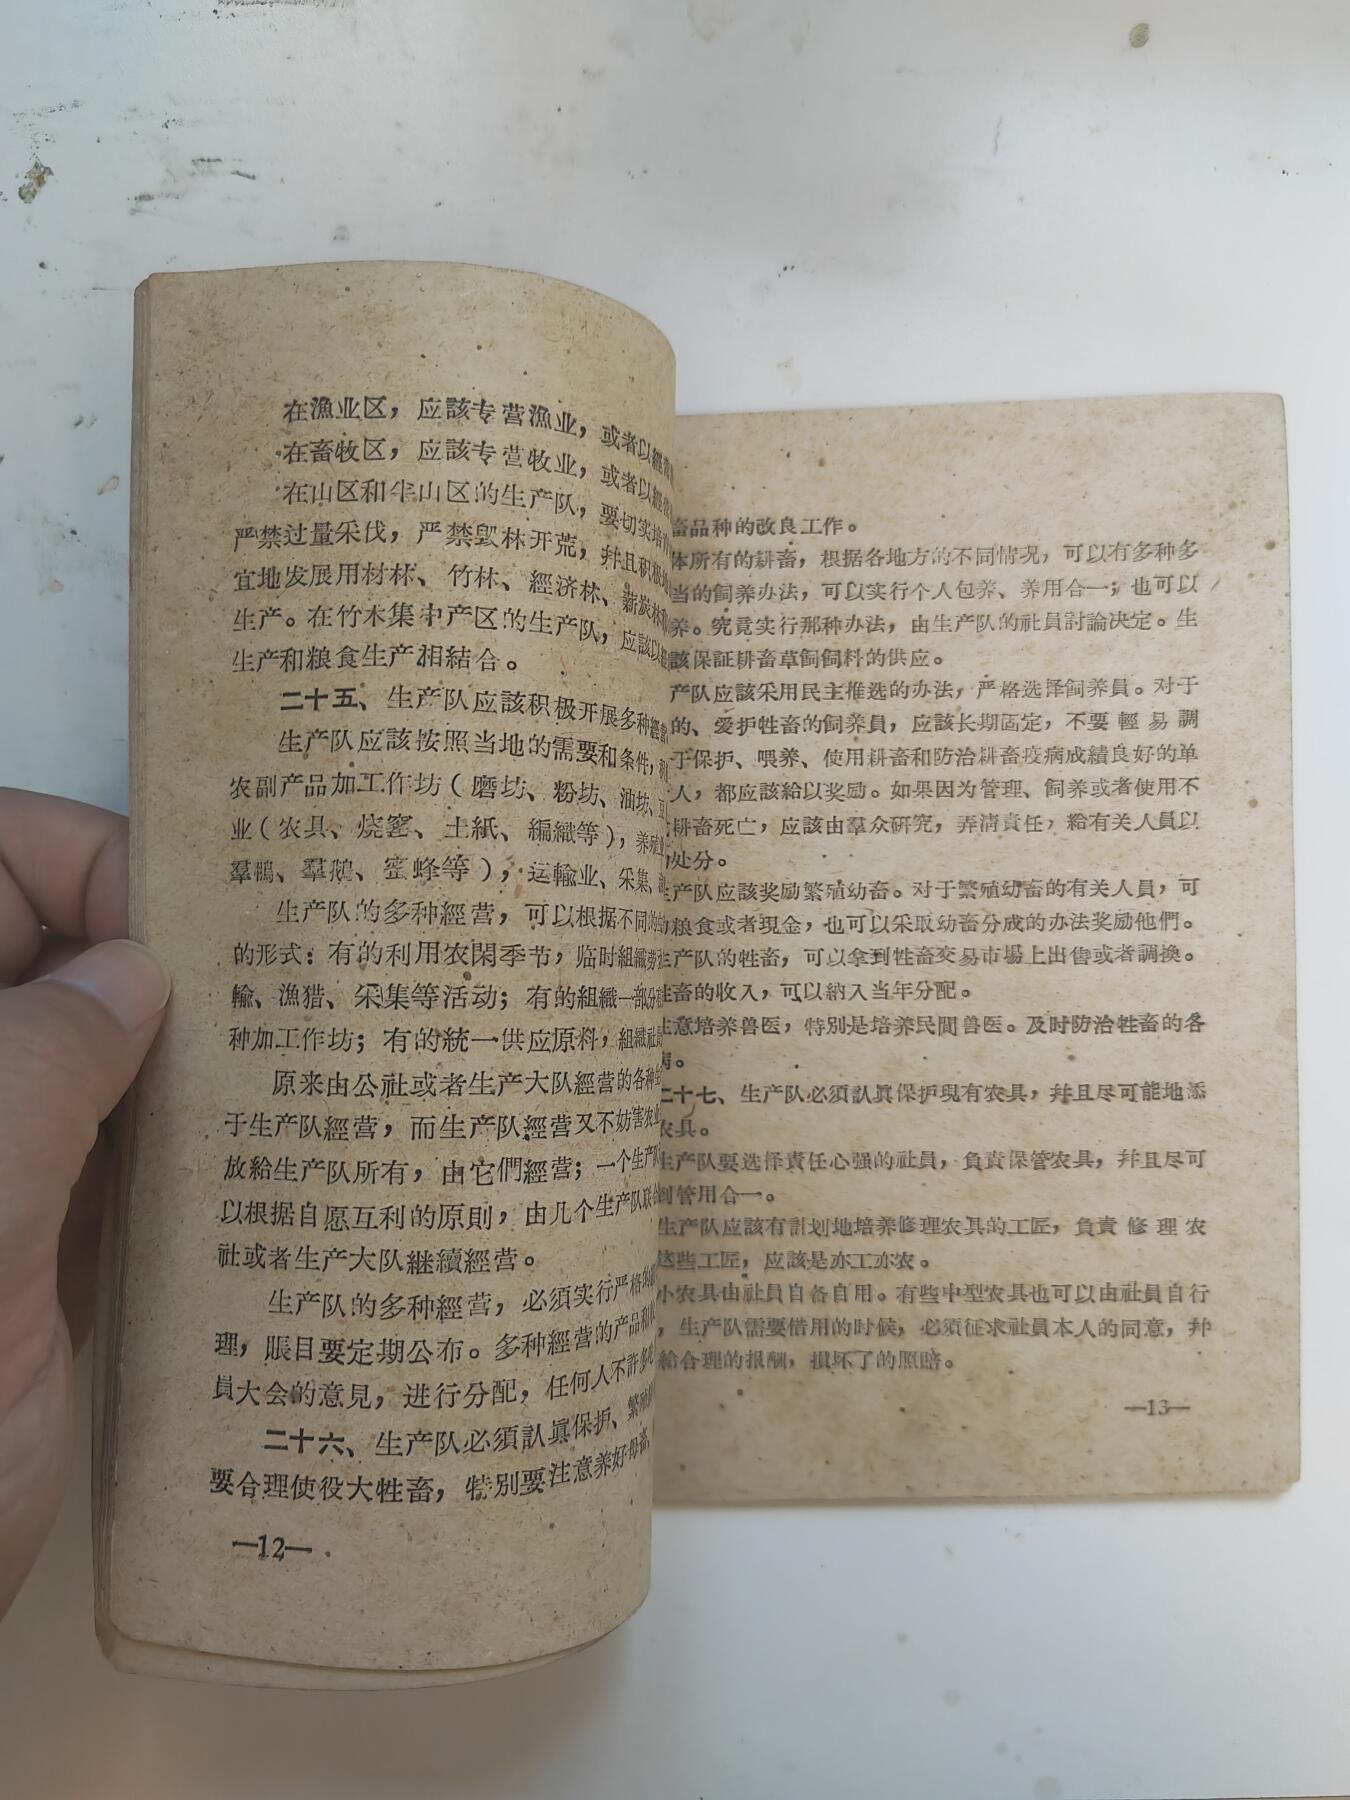 在漁业区，应該专营漁业，或者以經营
在畜牧区，应該专营牧业，或者以經营
在山区和半山区的生产队，要切实培
严禁过量采伐，严禁毁林开荒，幷且积极地
宜地发展用材林、竹林、經济林、薪炭林和
生产。在竹木集中产区的生产队，应該以
生产和粮食生产相結合。
二十五、生产队应該积极开展多种經营
生产队应該按照当地的需要和条件，积
农副产品加工作坊（磨坊、粉坊、油坊、豆
业（农具、烧窰、土紙、編織等），养殖业
羣鴨、羣鵝、蜜蜂等），运輸业、采集、漁
生产队的多种經营，可以根据不同的
的形式：有的利用农閑季节，临时組織劳
輸、漁猎、采集等活动；有的組織一部分
种加工作坊；有的統一供应原料，組織社
原来由公社或者生产大队經营的各种
于生产队經营，而生产队經营又不妨害农业
放給生产队所有，由它們經营；一个生产队
以根据自愿互利的原則，由几个生产队联合
社或者生产大队継續經营。
生产队的多种經营，必須实行严格的
理，賬目要定期公布。多种經营的产品和
員大会的意見，进行分配，任何人不許多
二十六、生产队必須認眞保护、繁殖
要合理使役大牲畜，特别要注意养好母畜、
—12—
畜品种的改良工作。
体所有的耕畜，根据各地方的不同情况，可以有多种多
当的飼养办法，可以实行个人包养、养用合一；也可以
养。究竟实行那种办法，由生产队的社員討論决定。生
該保証耕畜草飼飼料的供应。
产队应該采用民主推选的办法，严格选择飼养員。对于
的、爱护牲畜的飼养員，应該长期固定，不要輕易調
于保护、喂养、使用耕畜和防治耕畜疫病成績良好的单
人，都应該給以奖励。如果因为管理、飼养或者使用不
耕畜死亡，应該由羣众研究，弄清責任，給有关人員以
处分。
生产队应該奖励繁殖幼畜。对于繁殖幼畜的有关人員，可
粮食或者現金，也可以采取幼畜分成的办法奖励他們。
生产队的牲畜，可以拿到牲畜交易市場上出售或者調換。
牲畜的收入，可以納入当年分配。
注意培养兽医，特別是培养民間兽医。及时防治牲畜的各
病。
二十七、生产队必須認眞保护現有农具，幷且尽可能地添
农具。
生产队要选择責任心强的社員，負責保管农具，幷且尽可
到管用合一。
生产队应該有計划地培养修理农具的工匠，負責修理农
这些工匠，应該是亦工亦农。
小农具由社員自备自用。有些中型农具也可以由社員自行
，生产队需要借用的时候，必須征求社員本人的同意，幷
給合理的报酬，損坏了的照賠。
—13—